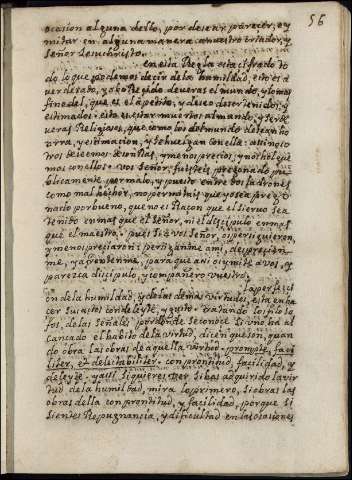 56
ocasion alguna dello, por desear, parecer, e y
mitar en alguna manera a nuestro criador, y
Señor Jesuchristo.
En esta Regla esta cifrado to
do lo que podemos decir de la humildad, esto es a
ver dexado, y aborrecido de veras el mundo, y lo mas
fino del, que es el apetito, y deseo de ser tenidos, y
estimados. esto es estar muertos al mundo, y ser de
veras Religiosos, que como los del mundo desean hon
rra, y estimacion, y se huelgan con ella: assi noso
tros deseemos desonrras, y menos precios, y nos holgue
mos con ellos. vos Señor, fuisteis pregonado pu
blicamente por malo, y puesto entre dos ladrones
como mal hechor, no permitais que yo sea prego
nado por bueno, que no es Raçon que el siervo sea
tenido en mas que el Señor, ni el discipulo en mas
que el maestro, pues si a vos Señor, os persiguieron,
y menospreciaron: persiganme a mi, desprecien
me, y afrentenme, para que assi os imite a vos, y
parezca discipulo, y compañero vuestro.
La perfeci
on de la humildad, y de las demas virtudes, esta en ha
cer sus actos con deleyte, y gusto. tratando los philoso
fos, de las Señales por donde se conoce si uno ha al
cançado el habito de la virtud, dicen que son, quan
do obra las obras de aquella virtud, prompte, faci
liter, et delectabiliter. con prontitud, facilidad, y
deleyte. y assi si quieres ver si has adquirido la vir
tud de la humildad, mira lo primero, si obras las
obras della con prontitud, y facilidad, porque si
sientes Repugnancia, y dificultad en las ocasiones